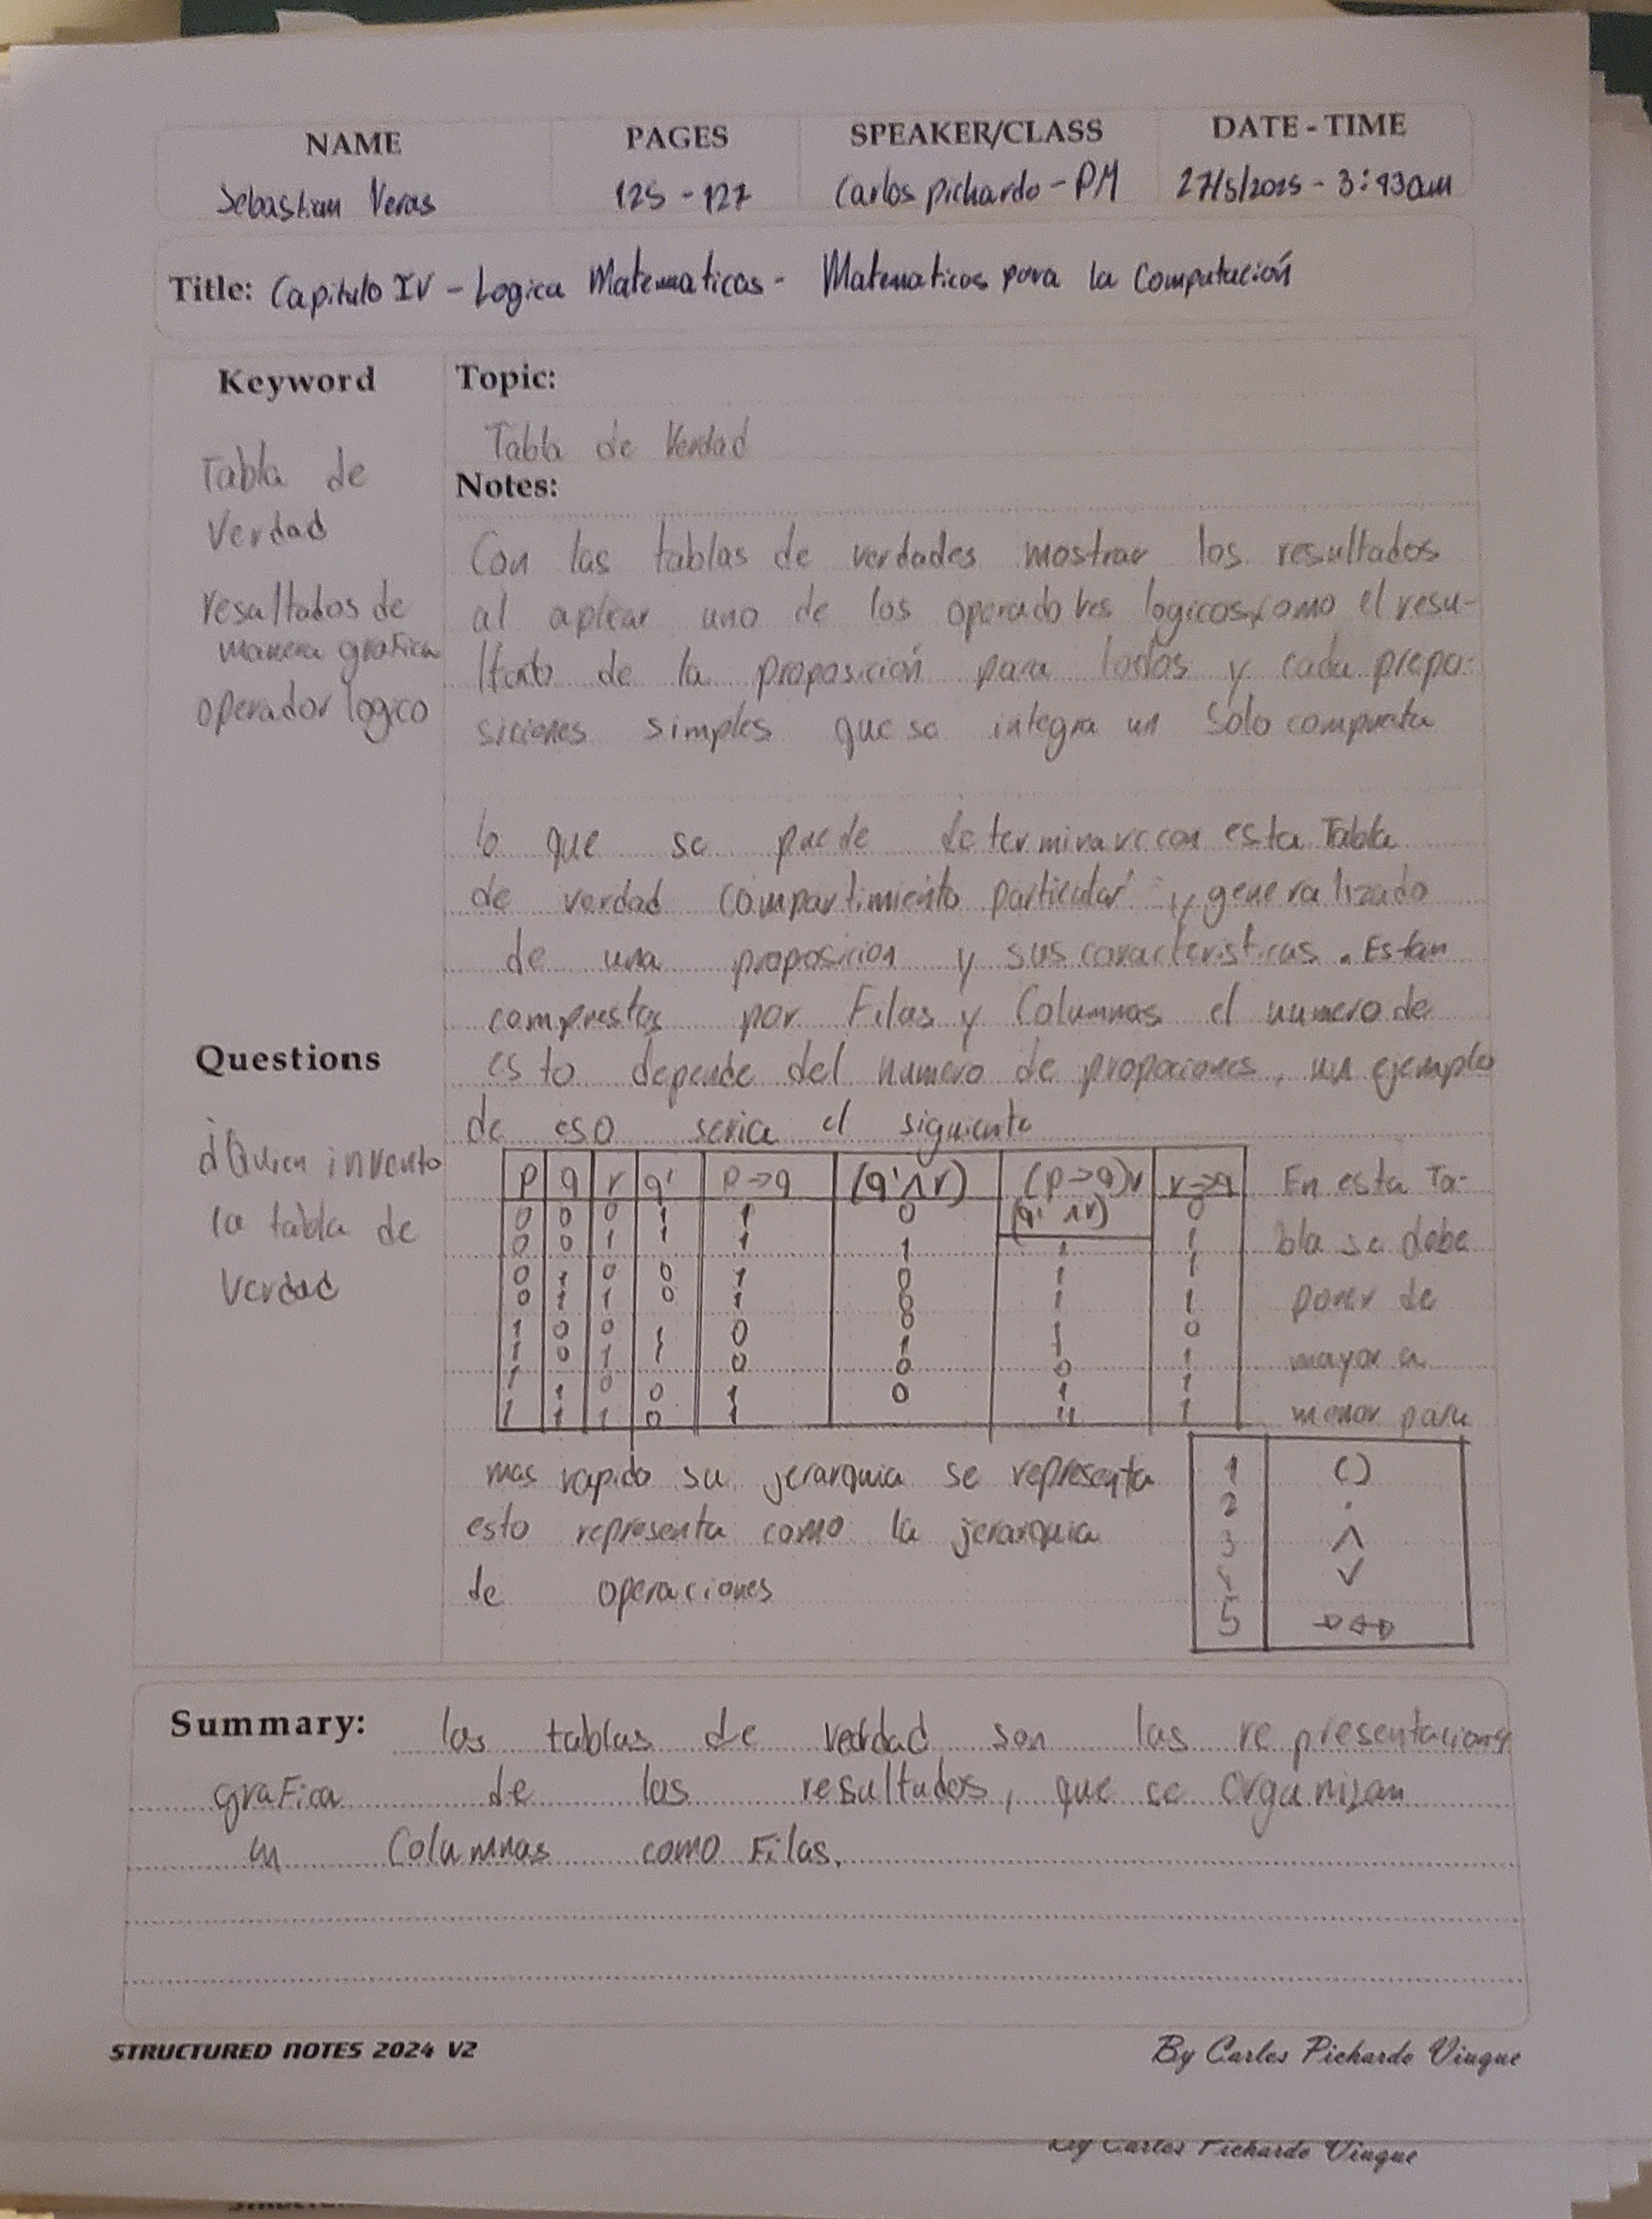 NAME PAGES SPEAKER/CLASS DATE - TIME
Sebastian Veras 125 - 127 Carlos pichardo - PM 27/5/2025 - 3:43am
Title: Capitulo IV - Logica Matematicas - Matematicas para la Computación
Keyword
Tabla de
Verdad
resultados de
manera grafica
operador logico
Topic:
Tabla de Verdad
Notes:
Con las tablas de verdades mostrar los resultados
al aplicar uno de los operadores logicos, como el resu-
ltado de la proposición para todos y cada propo-
siciones simples que se integra un solo compuesta
lo que se puede determinar con esta Tabla
de verdad compartimiento particular y generalizado
de una proposicion y sus caracteristicas. Estan
compuestas por Filas y Columnas el numero de
esto depende del numero de propociones, un ejemplo
de eso seria el siguiente
Questions
¿Quien invento
la tabla de
Verdad
p q r q' p→q (q'∧r) (p→q)v r→q
(q'∧r)
0 0 0 1 1 0 0
0 0 1 1 1 1 1 1
0 1 0 0 1 0 1 1
0 1 1 0 1 0 1 1
1 0 0 1 0 0 1 0
1 0 1 1 0 1 0 1
1 1 0 0 1 0 1 1
1 1 1 0 1 0 11 1
En esta Ta-
bla se debe
poner de
mayor a
menor para
mas rapido su jerarquia se representa
esto representa como la jerarquia
de operaciones
1 ()
2 '
3 ∧
4 ∨
5
Summary: las tablas de verdad son las representaciones
grafica de los resultados, que se organizan
en Columnas como Filas.
STRUCTURED NOTES 2024 V2 By Carlos Pichardo Viuque
By Carlos Pichardo Viuque